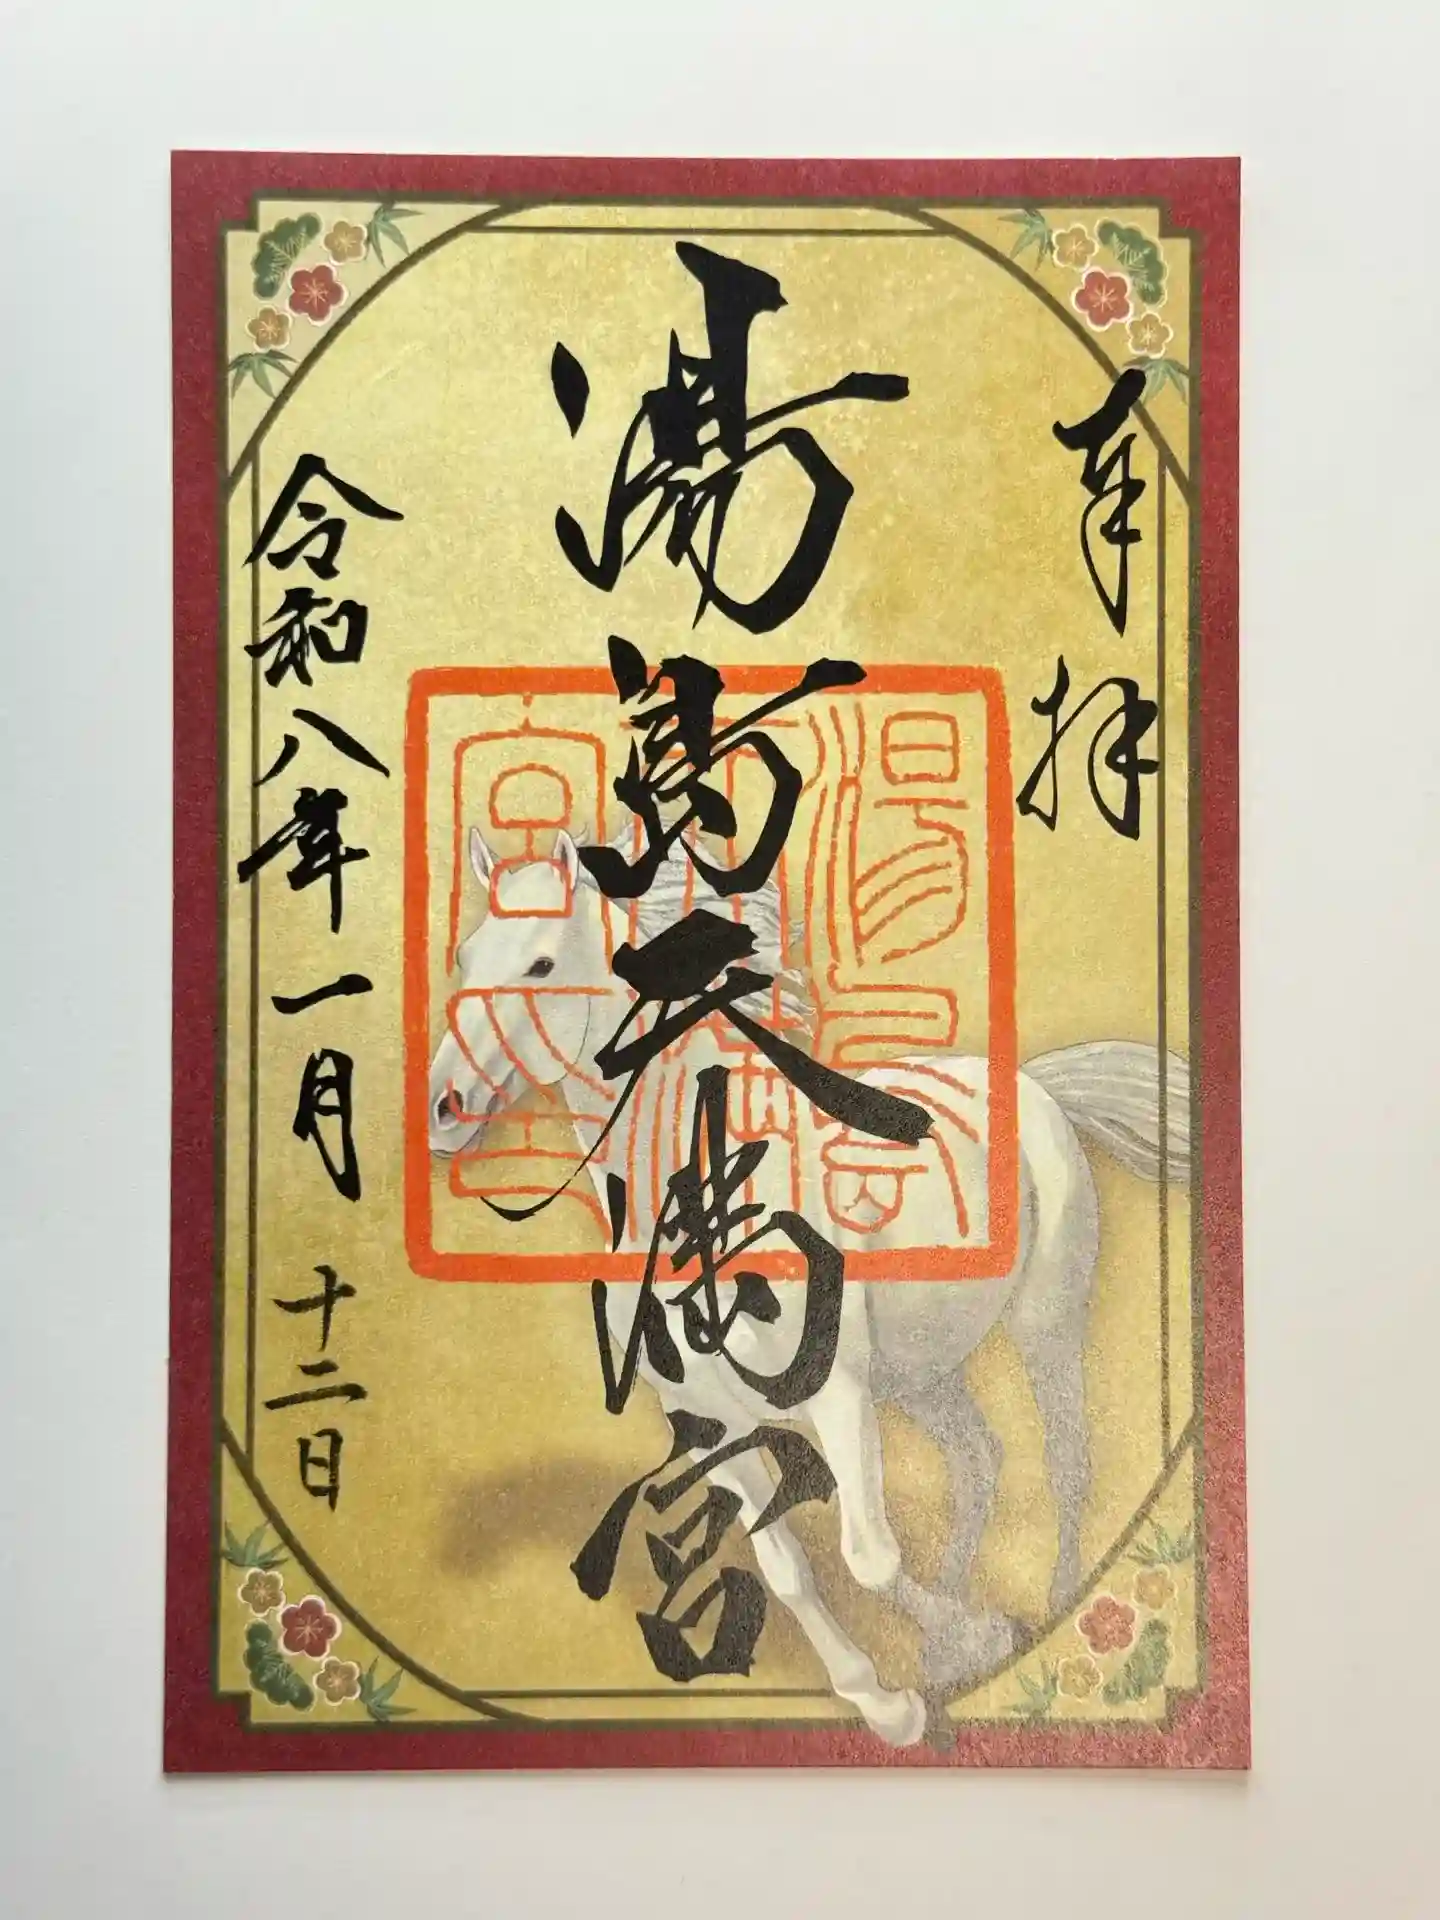 奉拝
湯島天満宮
令和八年一月十二日
湯島天満宮印